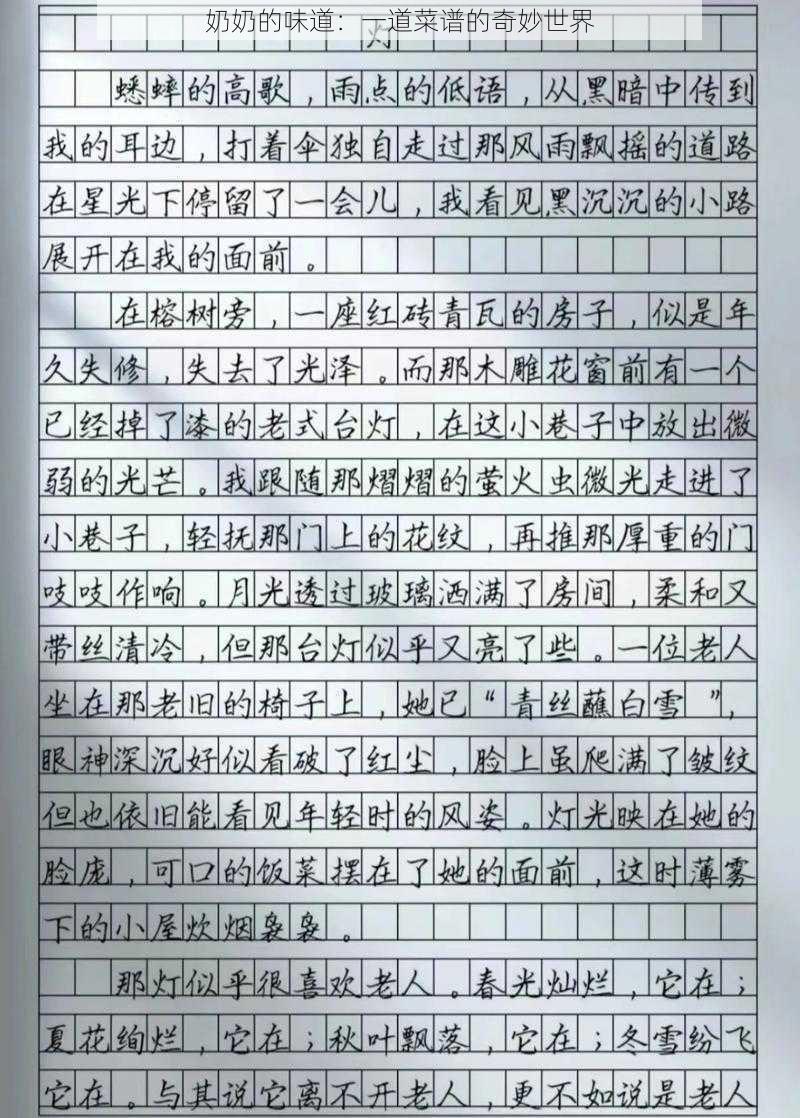 奶奶的味道：一道菜谱的奇妙世界
灯
蟋蟀的高歌，雨点的低语，从黑暗中传到
我的耳边，打着伞独自走过那风雨飘摇的道路
在星光下停留了一会儿，我看见黑沉沉的小路
展开在我的面前。
在榕树旁，一座红砖青瓦的房子，似是年
久失修，失去了光泽。而那木雕花窗前有一个
已经掉了漆的老式台灯，在这小巷子中放出微
弱的光芒。我跟随那熠熠的萤火虫微光走进了
小巷子，轻抚那门上的花纹，再推那厚重的门
吱吱作响。月光透过玻璃洒满了房间，柔和又
带丝清冷，但那台灯似乎又亮了些。一位老人
坐在那老旧的椅子上，她已“青丝蘸白雪”，
眼神深沉好似看破了红尘，脸上虽爬满了皱纹
但也依旧能看见年轻时的风姿。灯光映在她的
脸庞，可口的饭菜摆在了她的面前，这时薄雾
下的小屋炊烟袅袅。
那灯似乎很喜欢老人。春光灿烂，它在；
夏花绚烂，它在；秋叶飘落，它在；冬雪纷飞
它在。与其说它离不开老人，更不如说是老人